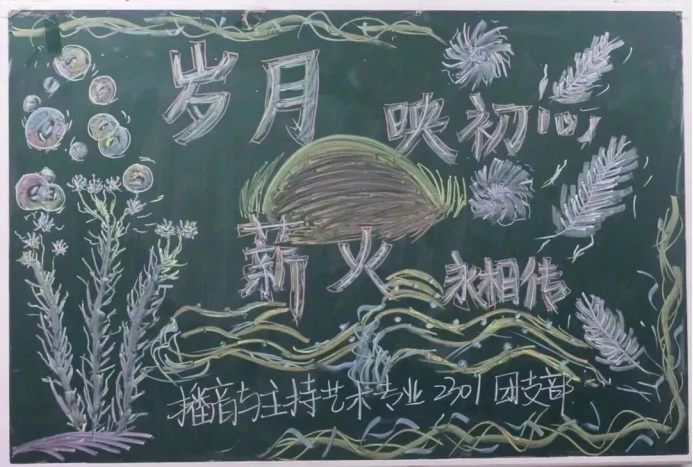 岁月映初心
薪火永相传
播音与主持艺术专业2301团支部